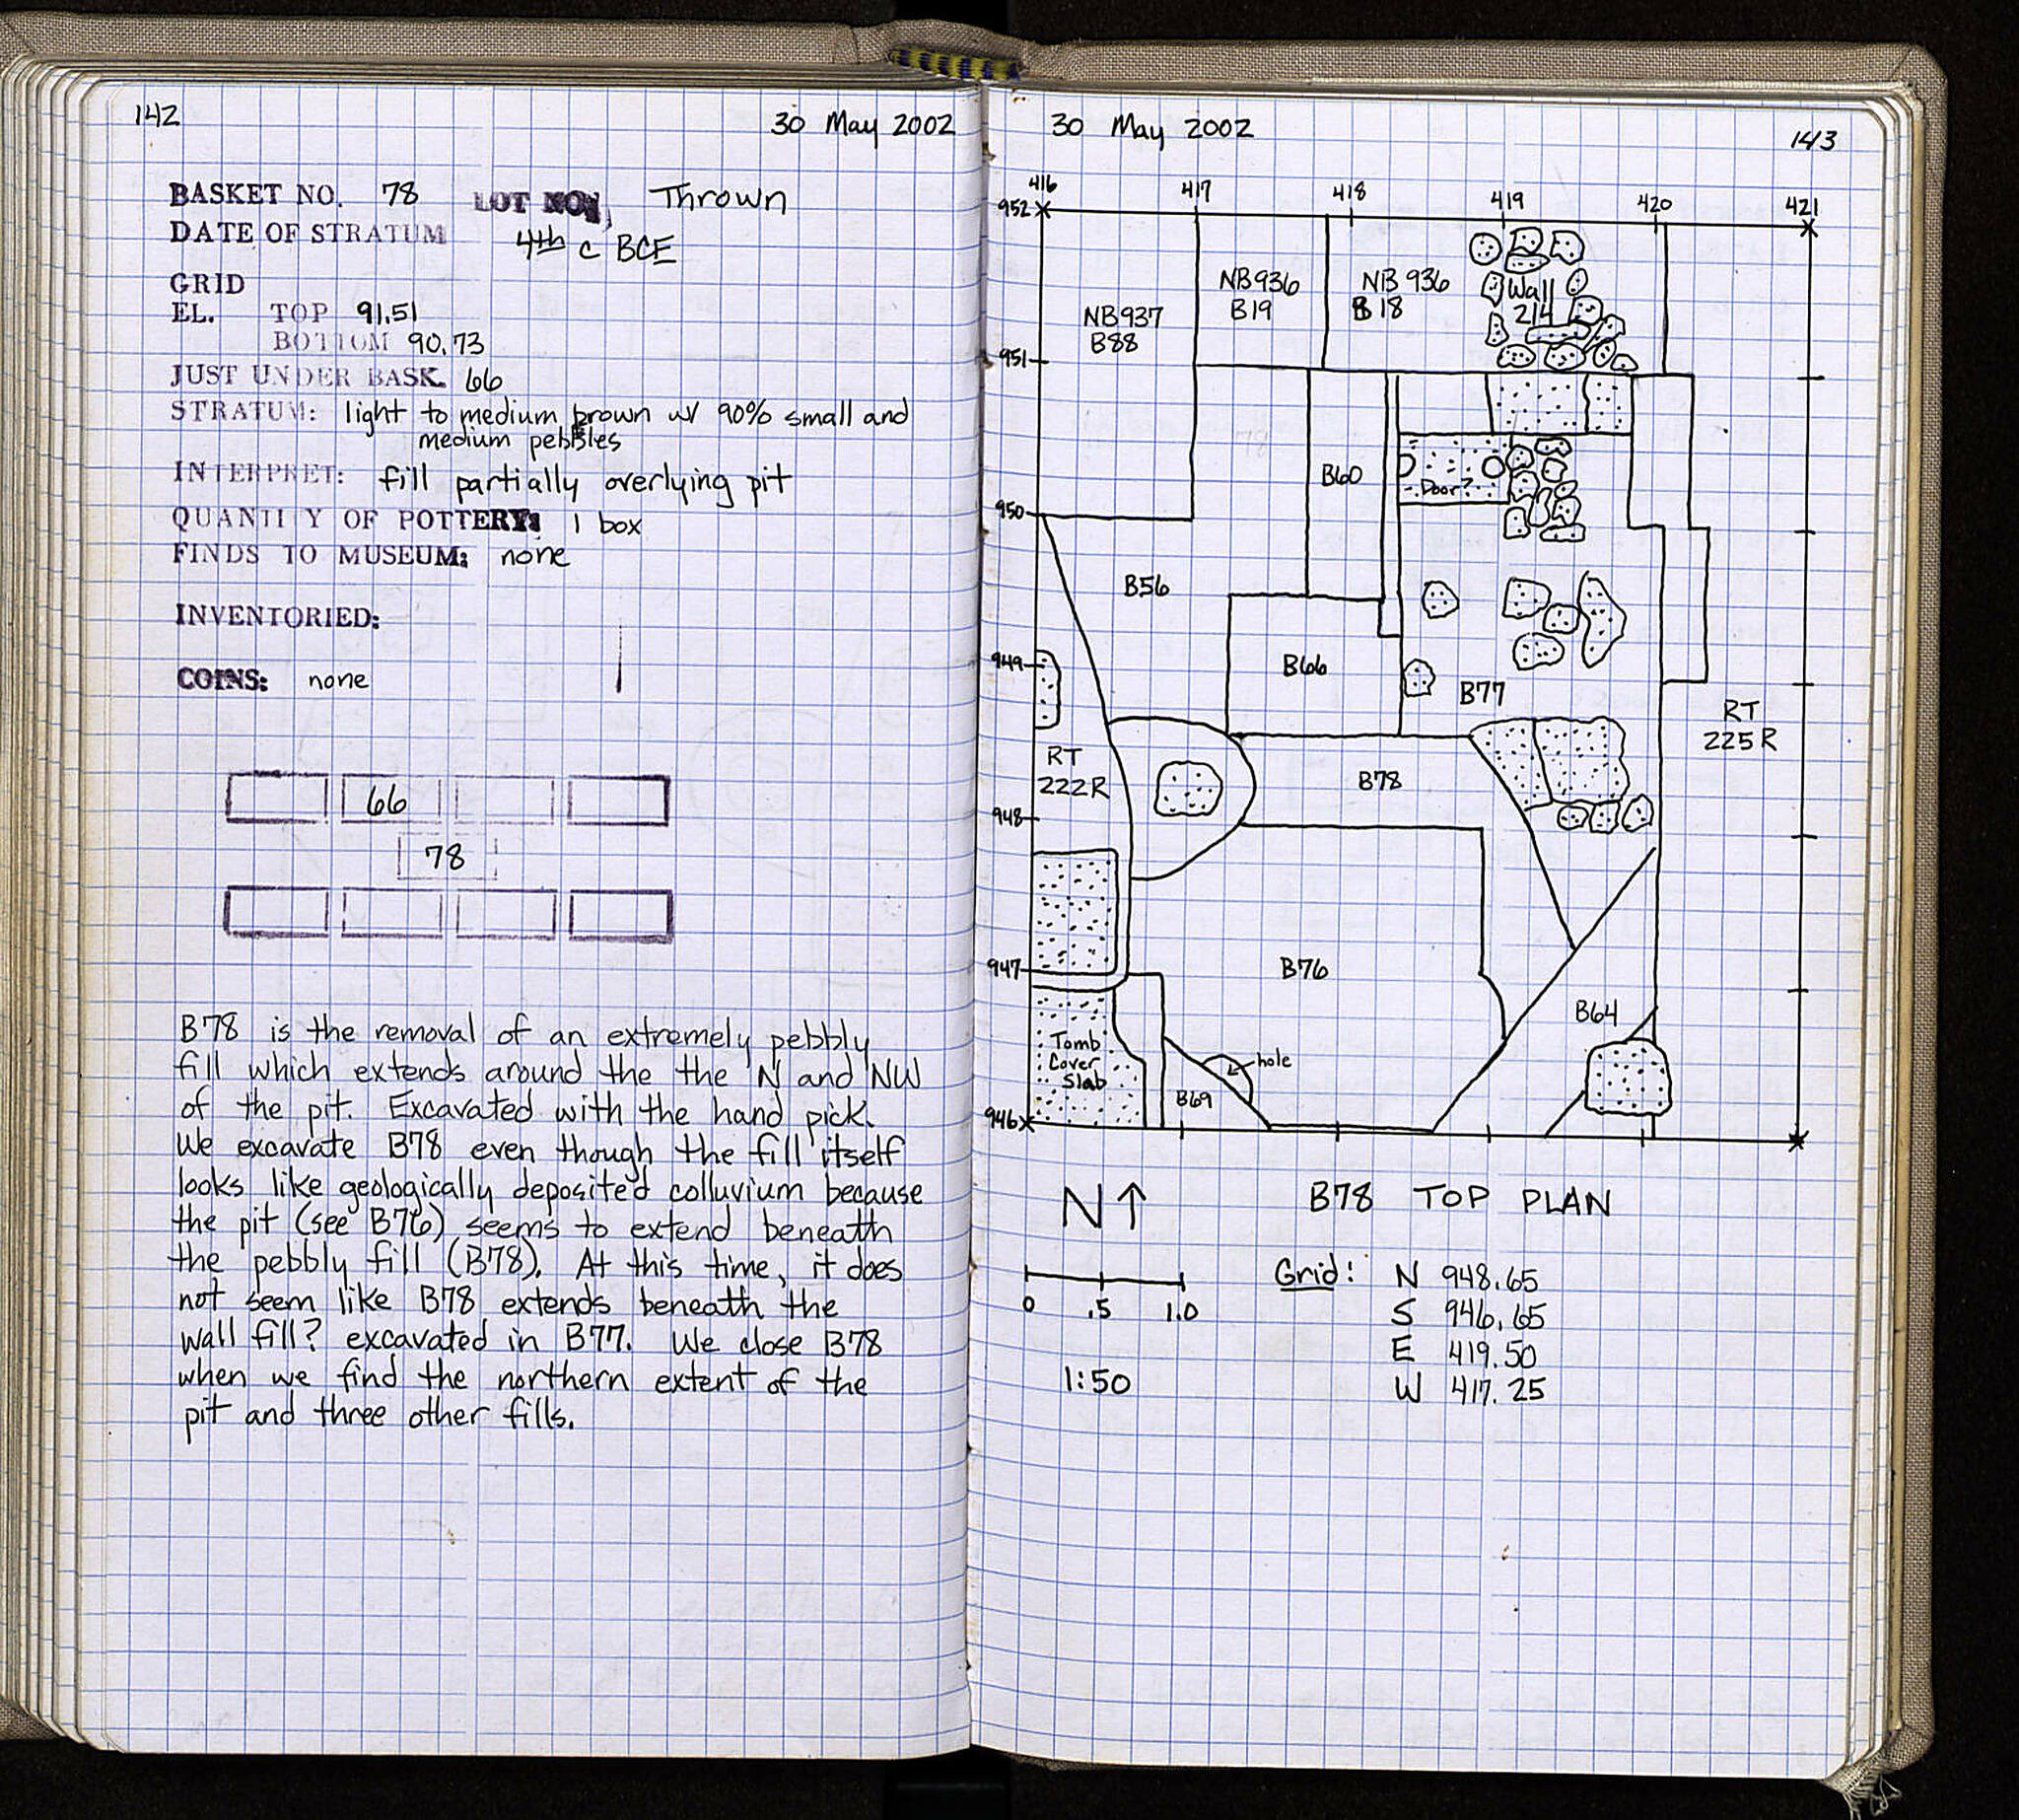 142
30 May 2002
BASKET NO. 78 LOT NO. Thrown
DATE OF STRATUM 4th c BCE
GRID
EL. TOP 91.51
BOTTOM 90.73
JUST UNDER BASK. 66
STRATUM: light to medium brown w/ 90% small and
medium pebbles
INTERPRET: fill partially overlying pit
QUANTITY OF POTTERY: 1 box
FINDS TO MUSEUM: none
INVENTORIED:
COINS: none
66
78
B78 is the removal of an extremely pebbly
fill which extends around the the N and NW
of the pit. Excavated with the hand pick.
We excavate B78 even though the fill itself
looks like geologically deposited colluvium because
the pit (see B76) seems to extend beneath
the pebbly fill (B78). At this time, it does
not seem like B78 extends beneath the
wall fill? excavated in B77. We close B78
when we find the northern extent of the
pit and three other fills.
30 May 2002
143
416 417 418 419 420 421
952
NB937
B88
NB936
B19
NB936
B18
Wall
214
951
B60
Door?
950
B56
949
B66
B77
RT
225R
RT
222R
B78
948
947
B76
B64
Tomb
Cover
Slab
hole
B69
946
N↑
B78 TOP PLAN
0 .5 1.0
1:50
Grid: N 948.65
S 946.65
E 419.50
W 417.25